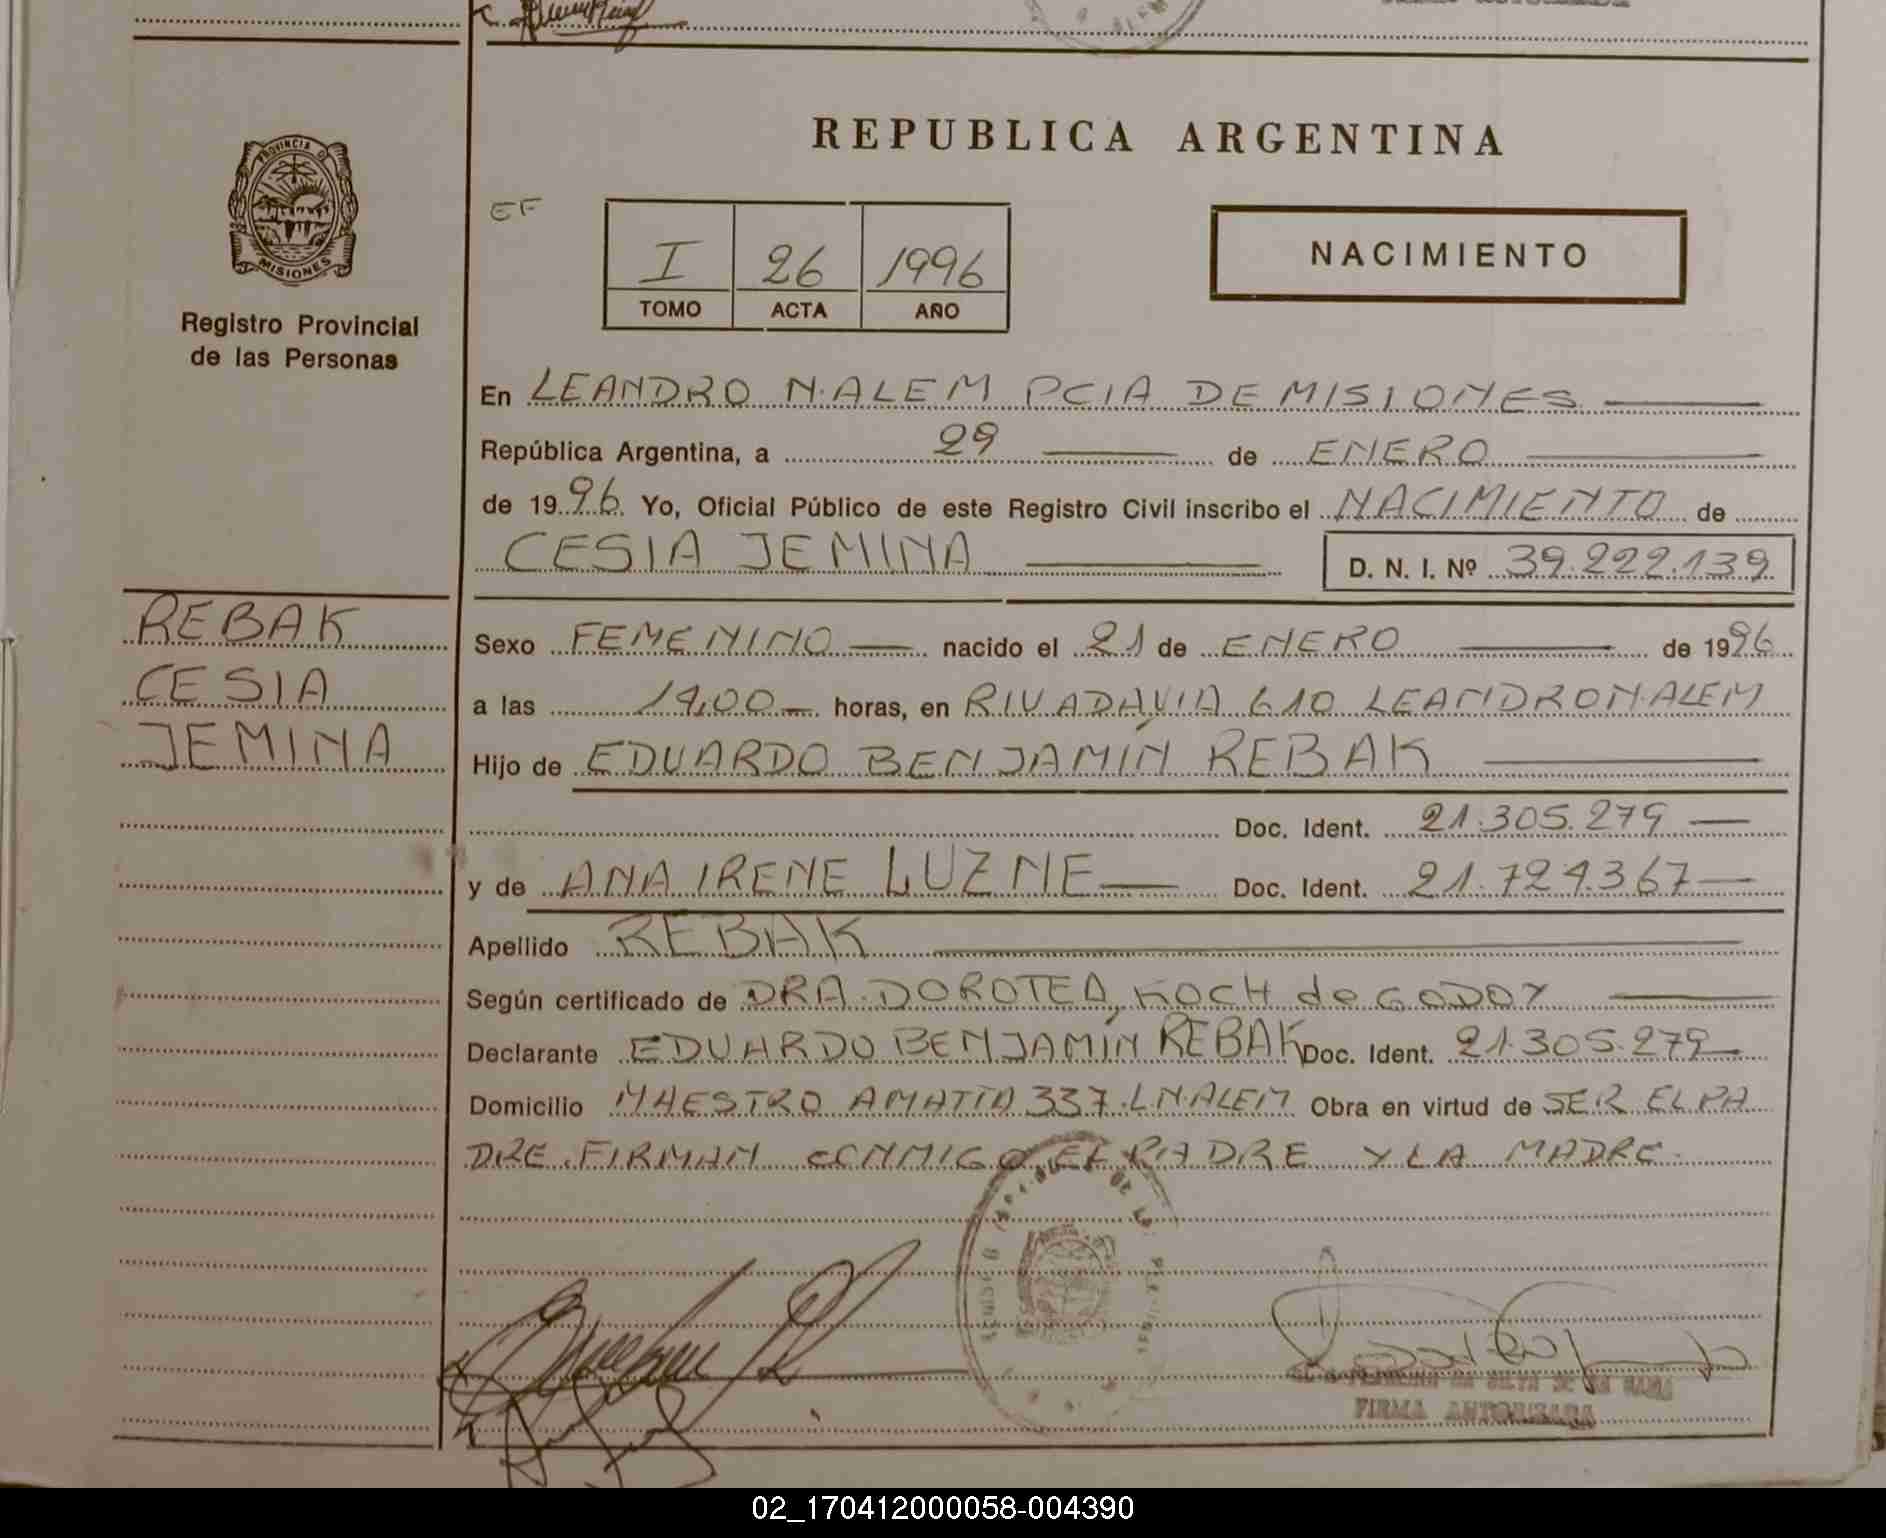 REPUBLICA ARGENTINA
PROVINCIA D
MISIONES
Registro Provincial
de las Personas
EF
I 26 1996
TOMO ACTA AÑO
NACIMIENTO
En LEANDRO N. ALEM PCIA DE MISIONES
República Argentina, a 29 de ENERO
de 1996 Yo, Oficial Público de este Registro Civil inscribo el NACIMIENTO de
CESIA JEMINA D. N. I. Nº 39.222.139
REBAK
CESIA
JEMINA
Sexo FEMENINO nacido el 21 de ENERO de 1996
a las 14,00 horas, en RIVADAVIA 610 LEANDRO N. ALEM
Hijo de EDUARDO BENJAMÍN REBAK
Doc. Ident. 21.305.279
y de ANA IRENE LUZNE Doc. Ident. 21.724.367
Apellido REBAK
Según certificado de DRA. DOROTEA KOCH de GODOY
Declarante EDUARDO BENJAMÍN REBAK Doc. Ident. 21.305.279
Domicilio MAESTRO AMATTA 337. L.N. ALEM Obra en virtud de SER EL PA
DRE. FIRMAN CONMIGO EL PADRE Y LA MADRE.
FIRMA AUTORIZADA
02_170412000058-004390